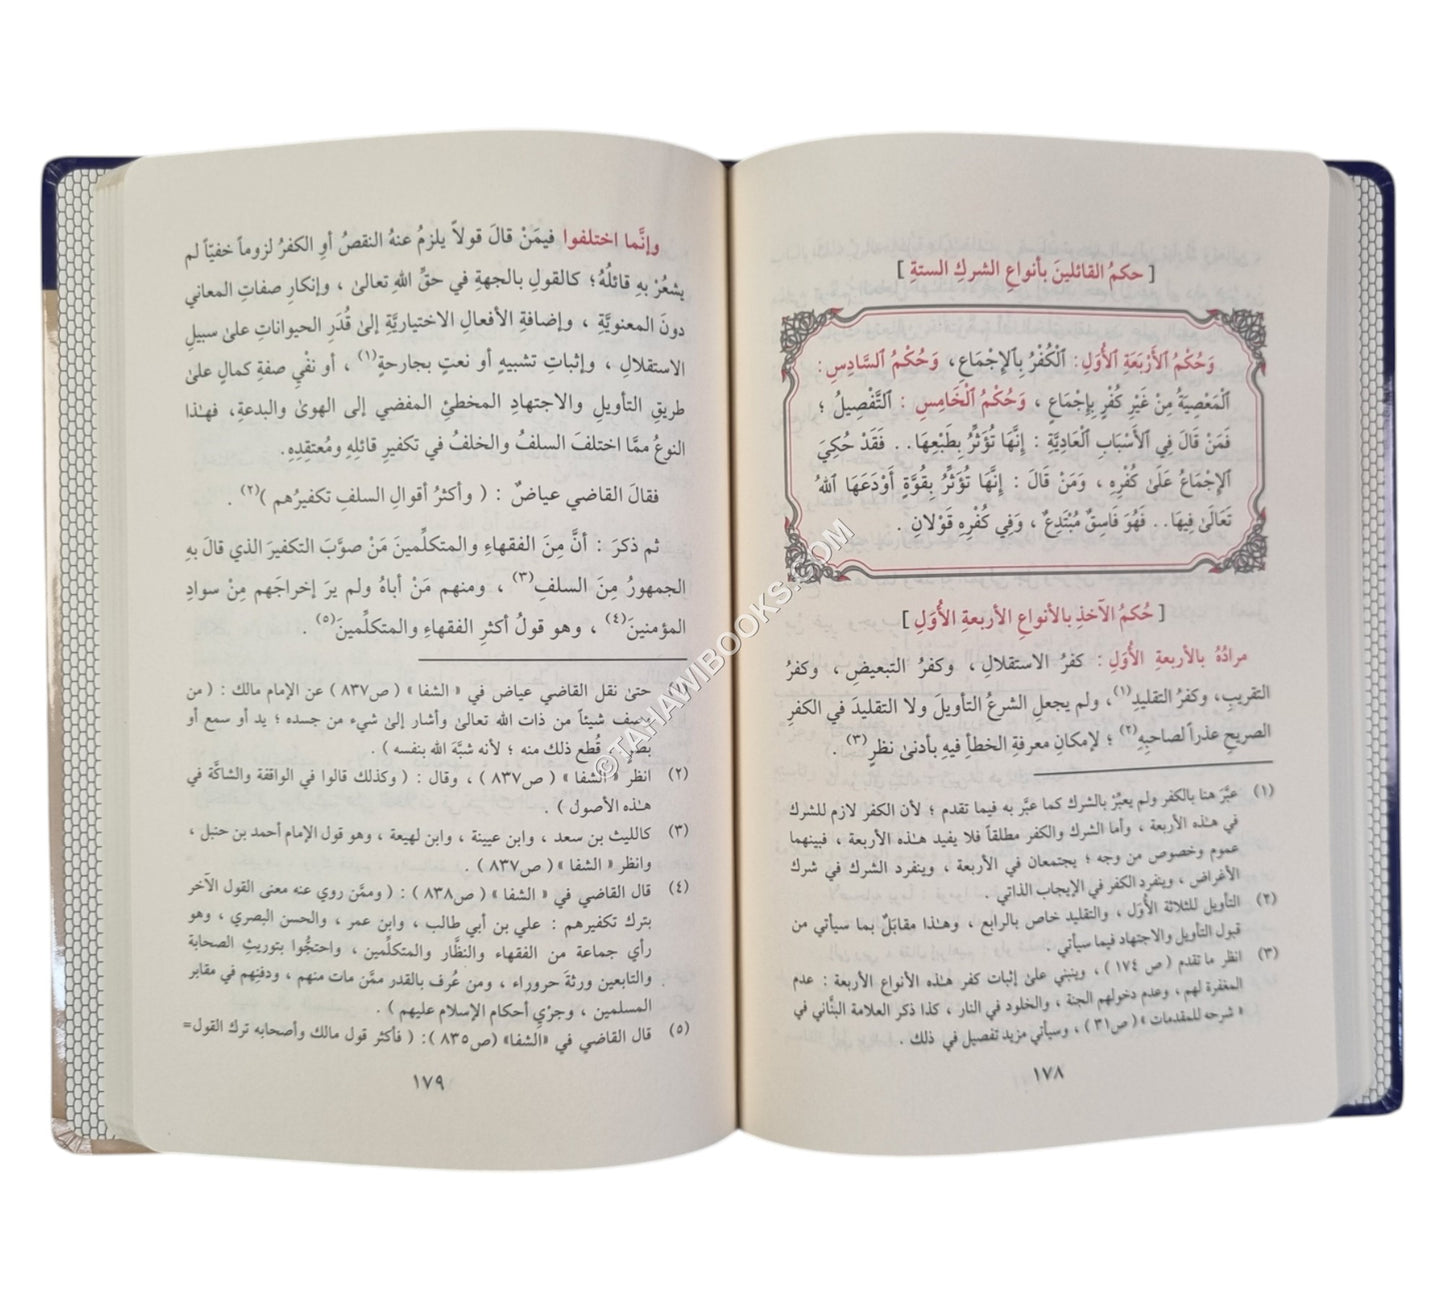 [ حكمُ القائلينَ بأنواعِ الشركِ الستة ]
وَحُكْمُ ٱلْأَرْبَعَةِ ٱلْأُوَلِ : ٱلْكُفْرُ بِٱلْإِجْمَاعِ ، وَحُكْمُ ٱلسَّادِسِ :
ٱلْمَعْصِيَةُ مِنْ غَيْرِ كُفْرٍ بِإِجْمَاعٍ ، وَحُكْمُ ٱلْخَامِسِ : ٱلتَّفْصِيلُ ؛
فَمَنْ قَالَ فِي ٱلْأَسْبَابِ ٱلْعَادِيَّةِ : إِنَّهَا تُؤَثِّرُ بِطَبْعِهَا.. فَقَدْ حُكِيَ
ٱلْإِجْمَاعُ عَلَىٰ كُفْرِهِ ، وَمَنْ قَالَ : إِنَّهَا تُؤَثِّرُ بِقُوَّةٍ أَوْدَعَهَا ٱللهُ
تَعَالَىٰ فِيهَا.. فَهُوَ فَاسِقٌ مُبْتَدِعٌ ، وَفِي كُفْرِهِ قَوْلَانِ .
[ حُكمُ الآخذِ بالأنواعِ الأربعةِ الأُوَلِ ]
مرادُهُ بالأربعةِ الأُوَلِ : كفرُ الاستقلالِ ، وكفرُ التبعيضِ ، وكفرُ
التقريبِ، وكفرُ التقليدِ(١)، ولم يجعلِ الشرعُ التأويلَ ولا التقليدَ في الكفرِ
الصريحِ عذراً لصاحبِهِ(٢) ؛ لإمكانِ معرفةِ الخطأِ فيهِ بأدنىٰ نظرٍ(٣) .
(١) عبَّرَ هنا بالكفر ولم يعبِّرْ بالشرك كما عبَّر به فيما تقدم ؛ لأن الكفر لازم للشرك
في هـٰذه الأربعة ، وأما الشرك والكفر مطلقاً فلا يفيد هـٰذه الأربعة ، فبينهما
عموم وخصوص من وجه ؛ يجتمعان في الأربعة ، وينفرد الشرك في شرك
الأغراض ، وينفرد الكفر في الإيجاب الذاتي .
(٢) التأويل للثلاثة الأُوَل ، والتقليد خاص بالرابع ، وهـٰذا مقابَلٌ بما سيأتي من
قبول التأويل والاجتهاد فيما سيأتي .
(٣) انظر ما تقدم ( ص ١٧٤ ) ، وينبني علىٰ إثبات كفر هـٰذه الأنواع الأربعة : عدم
المغفرة لهم ، وعدم دخولهم الجنة ، والخلود في النار ، كذا ذكر العلامة البنَّاني في
« شرحه للمقدمات » ( ص٣١ ) ، وسيأتي مزيد تفصيل في ذلك .
١٧٨
وإنَّما اختلفوا فيمَنْ قالَ قولاً يلزمُ عنهُ النقصُ أوِ الكفرُ لزوماً خفيّاً لم
يشعُرْ بهِ قائلُهُ ؛ كالقولِ بالجهةِ في حقِّ اللهِ تعالىٰ ، وإنكارِ صفاتِ المعاني
دونَ المعنويَّةِ ، وإضافةِ الأفعالِ الاختياريَّةِ إلىٰ قُدَرِ الحيواناتِ علىٰ سبيلِ
الاستقلالِ ، وإثباتِ تشبيهٍ أو نعتٍ بجارحةٍ(١) ، أو نفْيِ صفةِ كمالٍ علىٰ
طريقِ التأويلِ والاجتهادِ المخطئِ المفضي إلى الهوىٰ والبدعةِ، فهـٰذا
النوعُ ممَّا اختلفَ السلفُ والخلفُ في تكفيرِ قائلِهِ ومُعتقِدِهِ.
فقالَ القاضي عياضٌ : ( وأكثرُ أقوالِ السلفِ تكفيرُهم )(٢) .
ثم ذكرَ : أنَّ مِنَ الفقهاءِ والمتكلِّمينَ مَنْ صوَّبَ التكفيرَ الذي قالَ بهِ
الجمهورُ مِنَ السلفِ(٣) ، ومنهم مَنْ أباهُ ولم يرَ إخراجَهم مِنْ سوادِ
المؤمنينَ(٤) ، وهو قولُ أكثرِ الفقهاءِ والمتكلِّمينَ(٥) .
حتىٰ نقل القاضي عياض في « الشفا » ( ص٨٣٧ ) عن الإمام مالك : ( من
وصف شيئاً من ذات الله تعالىٰ وأشار إلىٰ شيء من جسده ؛ يد أو سمع أو
بصر.. قُطع ذلك منه ؛ لأنه شبَّهَ الله بنفسه ) .
(٢) انظر « الشفا » ( ص٨٣٧ ) ، وقال : ( وكذلك قالوا في الواقفة والشاكَّة في
هـٰذه الأصول ) .
(٣) كالليث بن سعد ، وابن عيينة ، وابن لهيعة ، وهو قول الإمام أحمد بن حنبل ،
وانظر « الشفا » ( ص٨٣٧ ) .
(٤) قال القاضي في « الشفا » ( ص٨٣٨ ) : ( وممَّن روي عنه معنى القول الآخر
بترك تكفيرهم : علي بن أبي طالب ، وابن عمر ، والحسن البصري ، وهو
رأي جماعة من الفقهاء والنظَّار والمتكلِّمين ، واحتجُّوا بتوريثِ الصحابة
والتابعين ورثةَ حروراء ، ومن عُرف بالقدر ممَّن مات منهم ، ودفنِهم في مقابر
المسلمين ، وجرْيِ أحكام الإسلام عليهم ) .
(٥) قال القاضي في «الشفا» (ص٨٣٥ ): ( فأكثر قول مالك وأصحابه ترك القول=
١٧٩
©TAHAWIBOOKS.COM